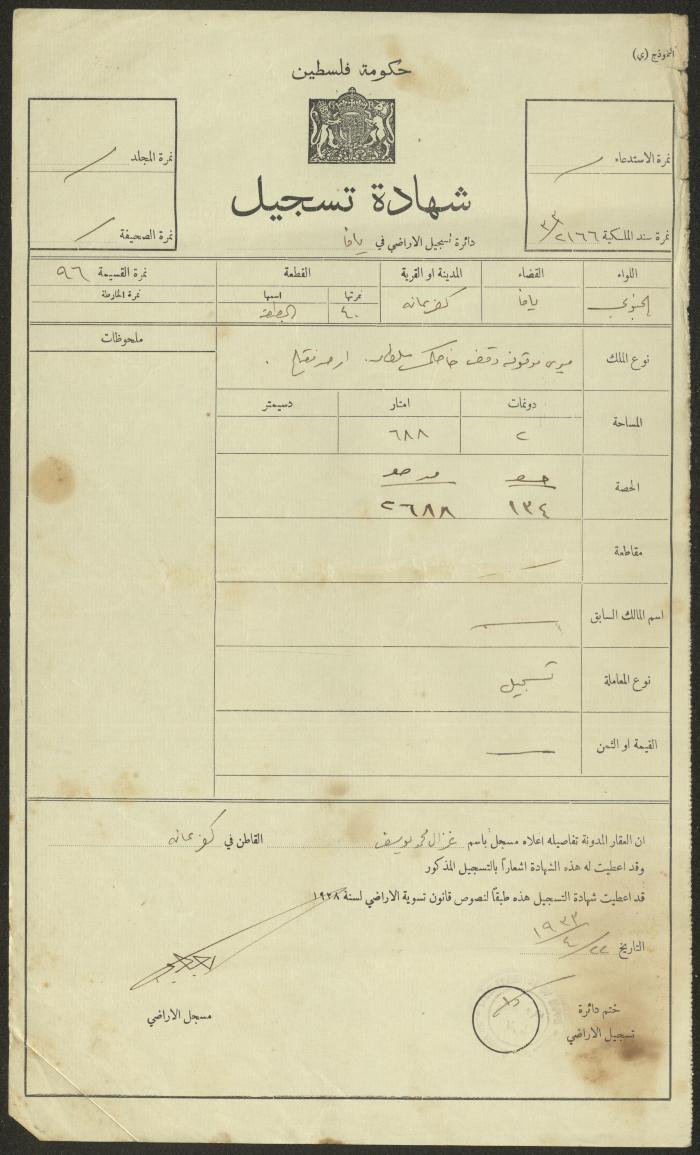 النموذج (ي)
حكومة فلسطين
نمرة الاستدعاء
نمرة سند الملكية ٢١٦٦/٣٣
نمرة المجلد
نمرة الصحيفة
شهادة تسجيل
دائرة تسجيل الاراضي في يافا
اللواء
القضاء
المدينة او القرية
القطعة
نمرة القسيمة ٩٦
الجنوبي
يافا
كفرعانه
نمرتها
اسمها
نمرة الخارطة
٤٠
نوع الملك
ميري موقوفه وقف خاصكي سلطان.
ملحوظات
المساحة
دونمات
امتار
دسيمتر
٢
٦٨٨
الحصة
حصه
من حصه
١٣٤
٢٦٨٨
مقاطعة
اسم المالك السابق
نوع المعاملة
تسجيل
القيمة او الثمن
ان العقار المدونة تفاصيله اعلاه مسجل باسم غزال محمد يوسف القاطن في كفرعانه
وقد اعطيت له هذه الشهادة اشعاراً بالتسجيل المذكور
قد اعطيت شهادة التسجيل هذه طبقاً لنصوص قانون تسوية الاراضي لسنة ١٩٢٨
التاريخ ٢٢/٤/١٩٣٣
ختم دائرة
تسجيل الاراضي
مسجل الاراضي